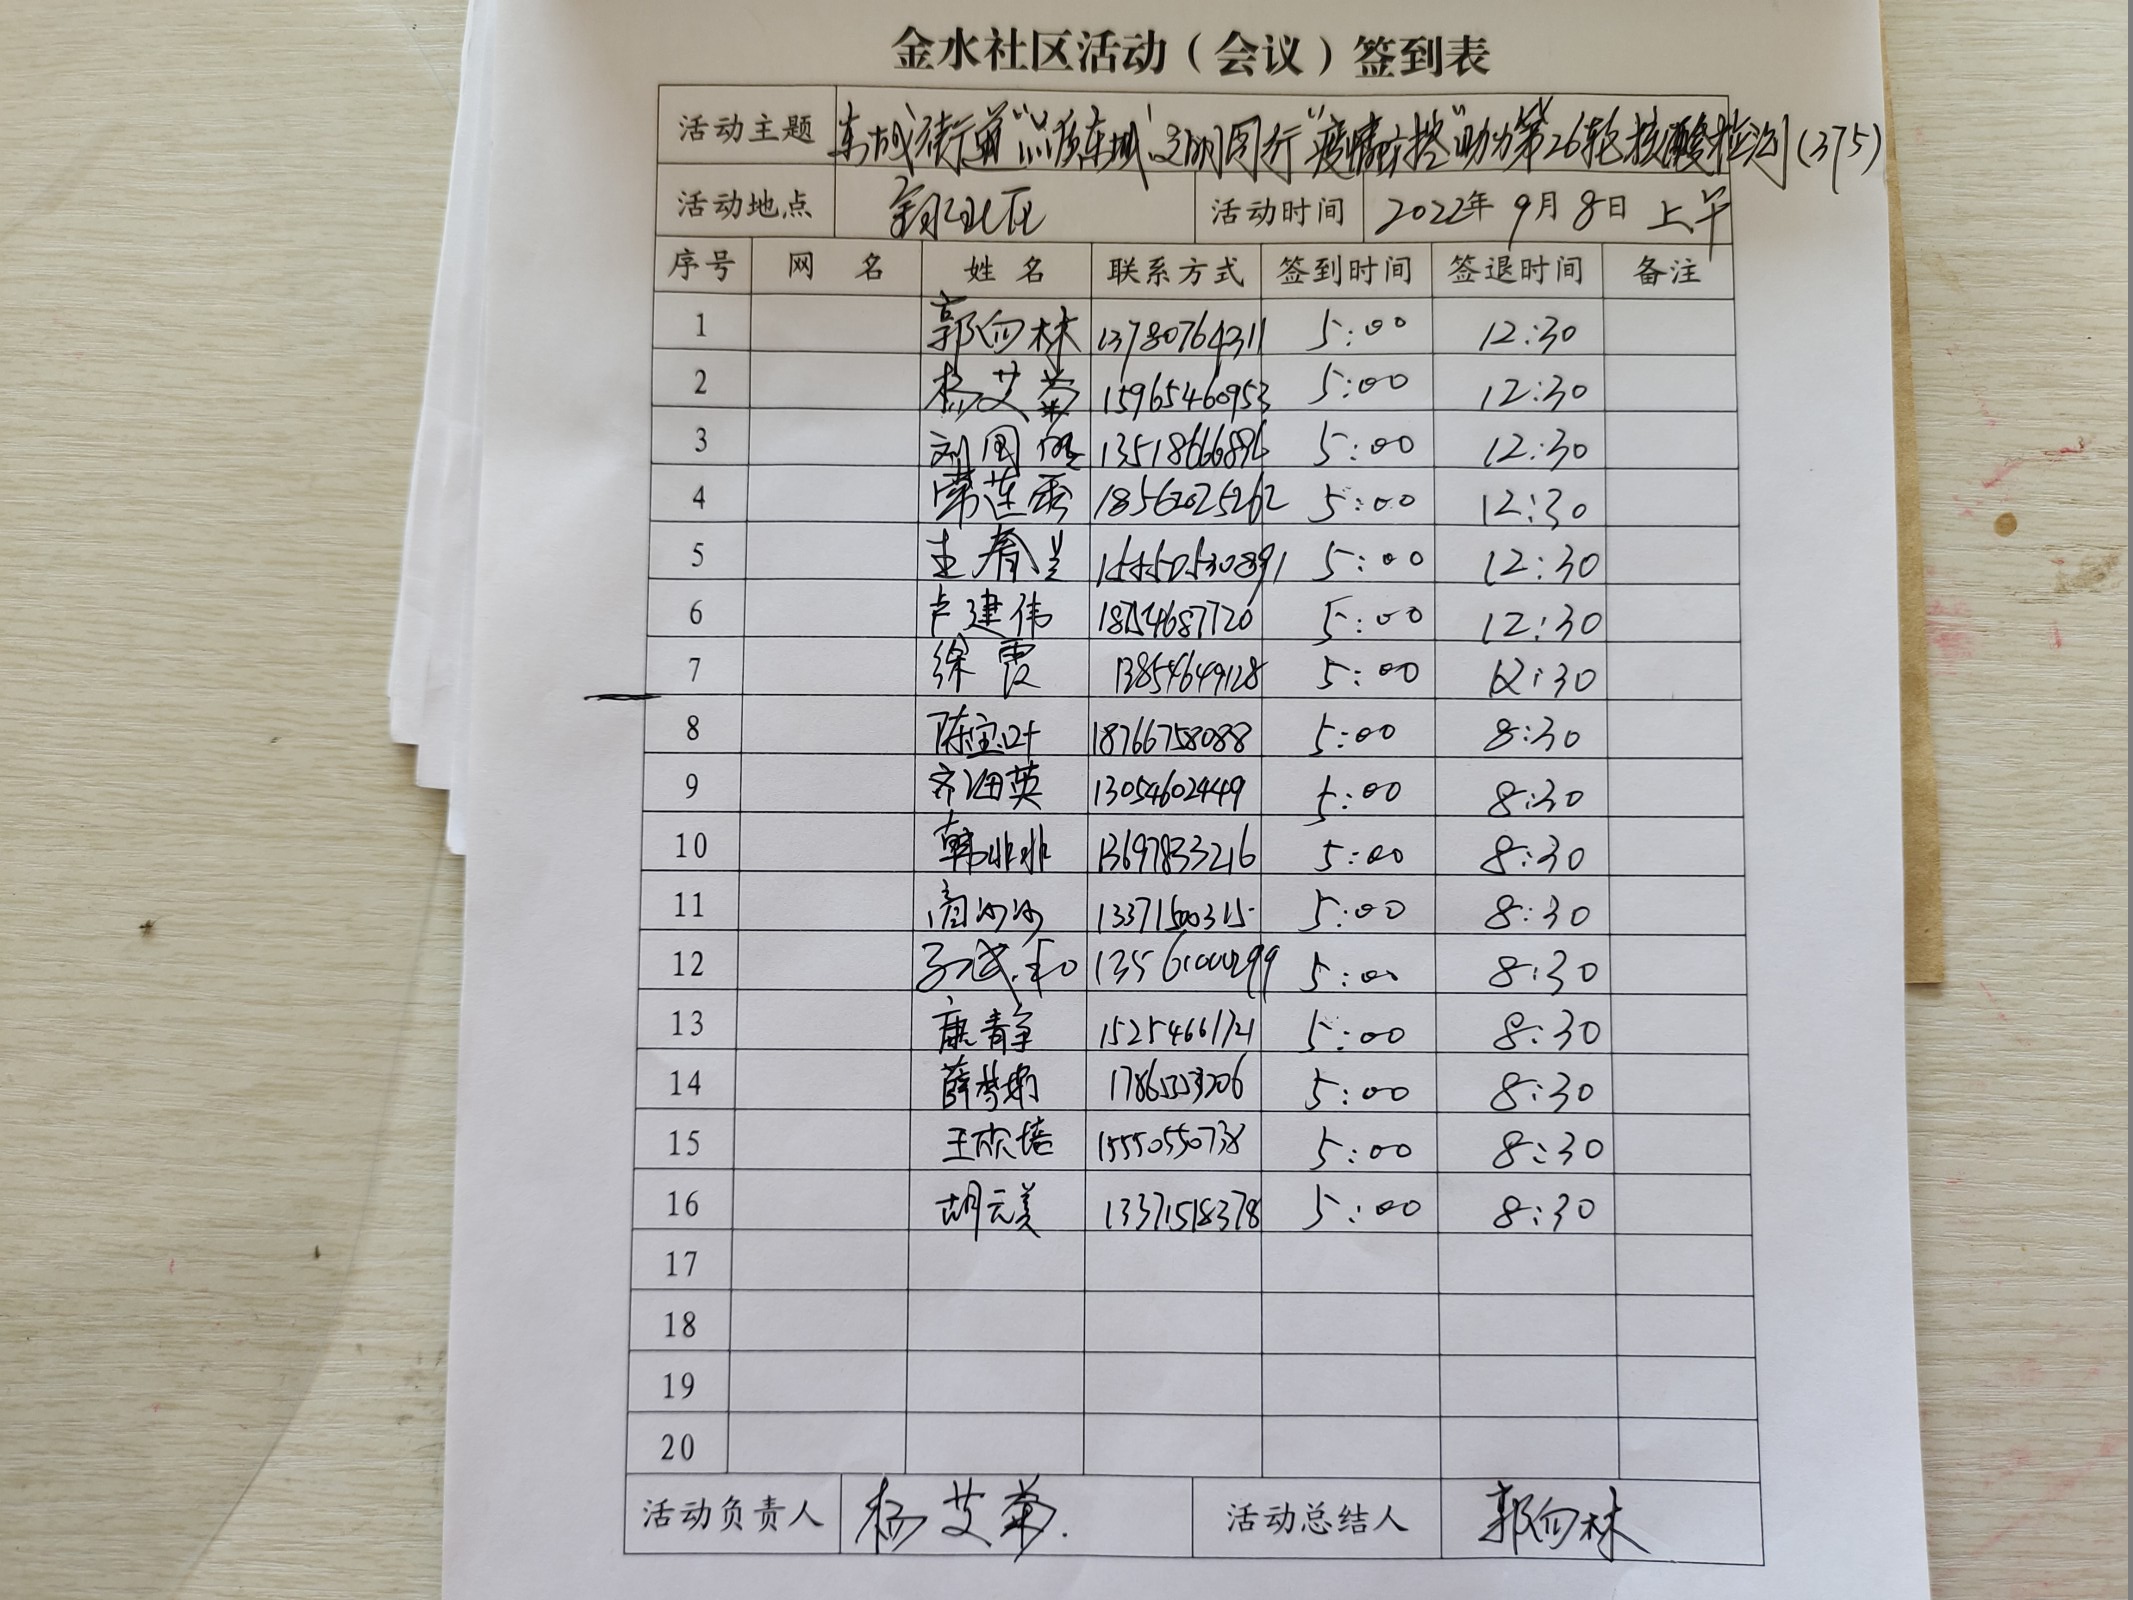 金水社区活动（会议）签到表
活动主题 东城街道“品质东城 文明同行”疫情防控“助力第26轮核酸检测(375)
活动地点 金水社区 活动时间 2022年9月8日上午
序号 网名 姓名 联系方式 签到时间 签退时间 备注
1 郭向林 13780764311 5:00 12:30
2 杨艾菊 15965460953 5:00 12:30
3 刘国 13518666896 5:00 12:30
4 常莲 18562025262 5:00 12:30
5 王春兰 15550530891 5:00 12:30
6 卢建伟 18754687720 5:00 12:30
7 徐霞 13854649128 5:00 12:30
8 陈宝叶 18766758088 5:00 8:30
9 齐海英 13054602449 5:00 8:30
10 韩非非 13697833216 5:00 8:30
11 商沙沙 13371500315 5:00 8:30
12 5:00 8:30
13 康静 15254661721 5:00 8:30
14 薛梦娟 5:00 8:30
15 王欣培 15550550738 5:00 8:30
16 胡元美 13371518378 5:00 8:30
17
18
19
20
活动负责人 杨艾菊. 活动总结人 郭向林